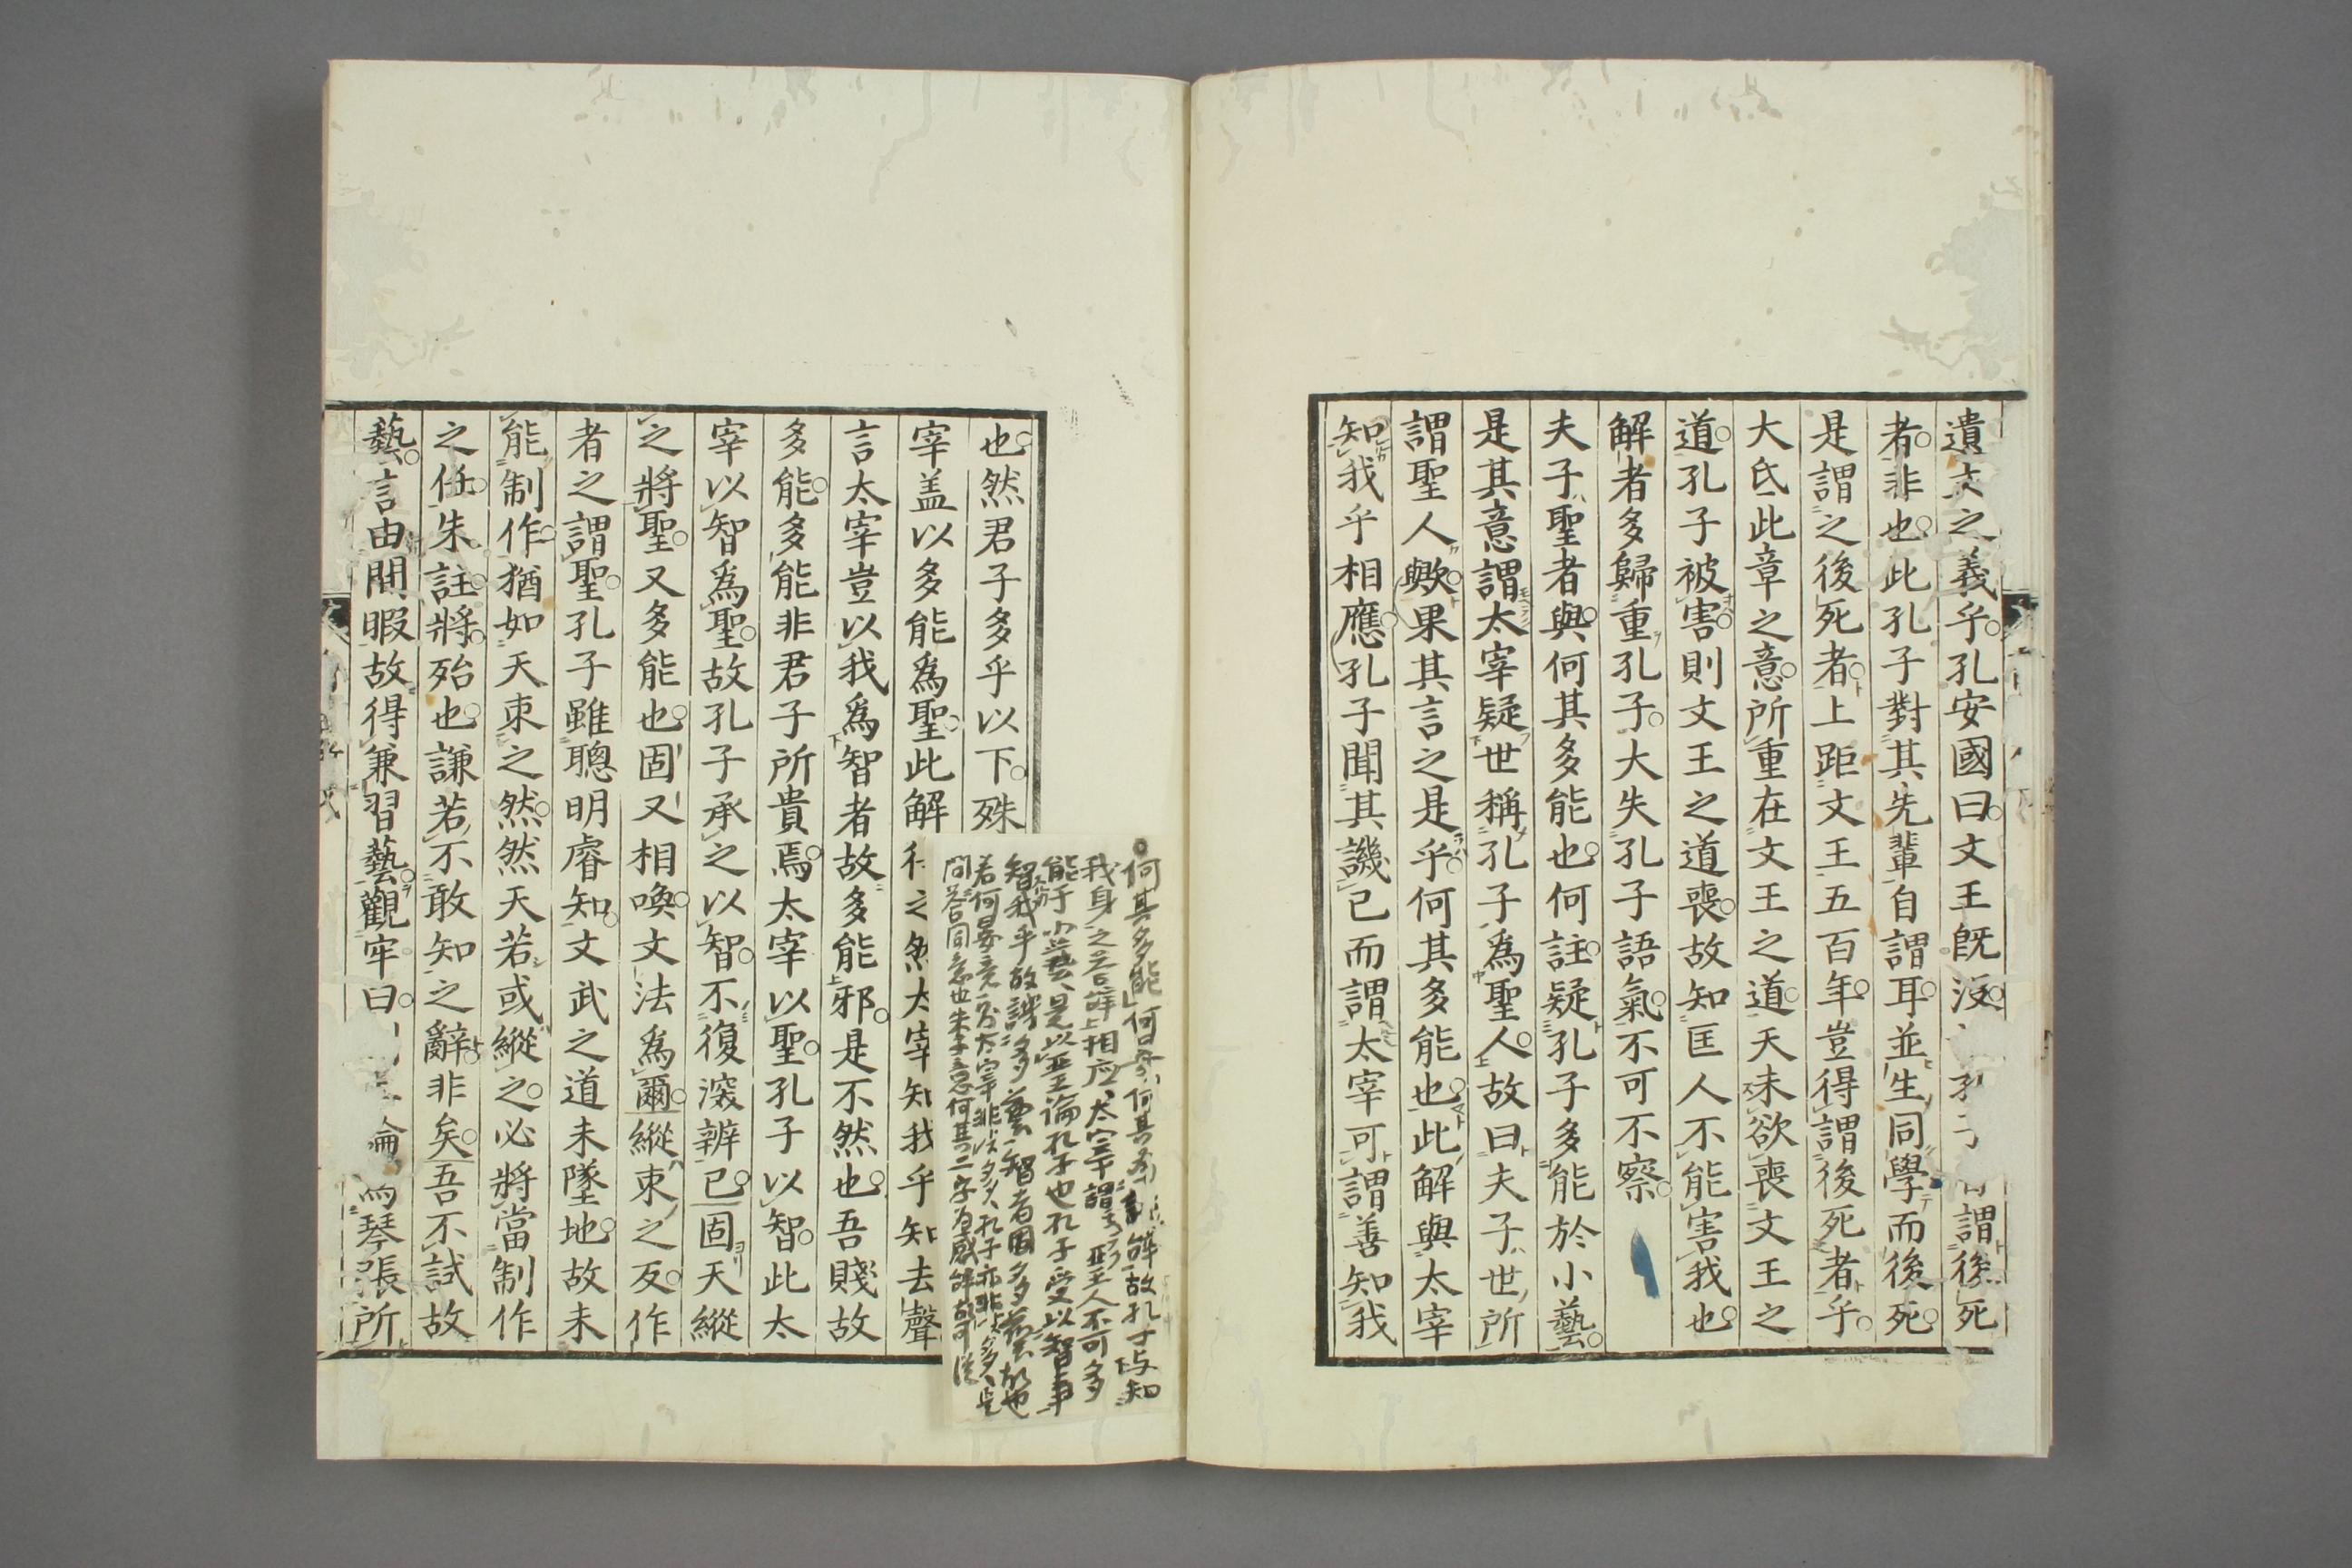 遺文之義乎孔安國曰文王既沒孔子謂後死
者非也此孔子對其先輩自謂耳並生同學而後死
是謂之後死者上距文王五百年豈得謂後死者乎
大氐此章之意所重在文王之道天未欲喪文王之
道孔子被害則文王之道喪故知匡人不能害我也
解者多歸重孔子大失孔子語氣不可不察
夫子聖者與何其多能也何註疑孔子多能於小藝
是其意謂太宰疑世稱孔子爲聖人故曰夫子世所
謂聖人歟果其言之是乎何其多能也此解與太宰
知我乎相應孔子聞其譏己而謂太宰可謂善知我
也然君子多乎以下殊
宰盖以多能爲聖此解
之然太宰知我乎知去聲
言太宰豈以我爲智者故多能邪是不然也吾賤故
多能多能非君子所貴焉太宰以聖孔子以智此太
宰以智爲聖故孔子承之以智不復深辨已固天縱
之將聖又多能也固又相喚文法爲爾縱朿之反作
者之謂聖孔子雖聰明睿知文武之道未墜地故未
能制作猶如天朿之然然天若或縱之必將當制作
之任朱註將殆也謙若不敢知之辭非矣吾不試故
藝言由閒暇故得兼習藝觀牢曰
琴張所
何其多能何
我身之
相応太宰謂
聖人不可多
能于小藝是以
論孔子也孔子受以智事
智我乎故
智者固多
問答同意也朱子意何其二字为